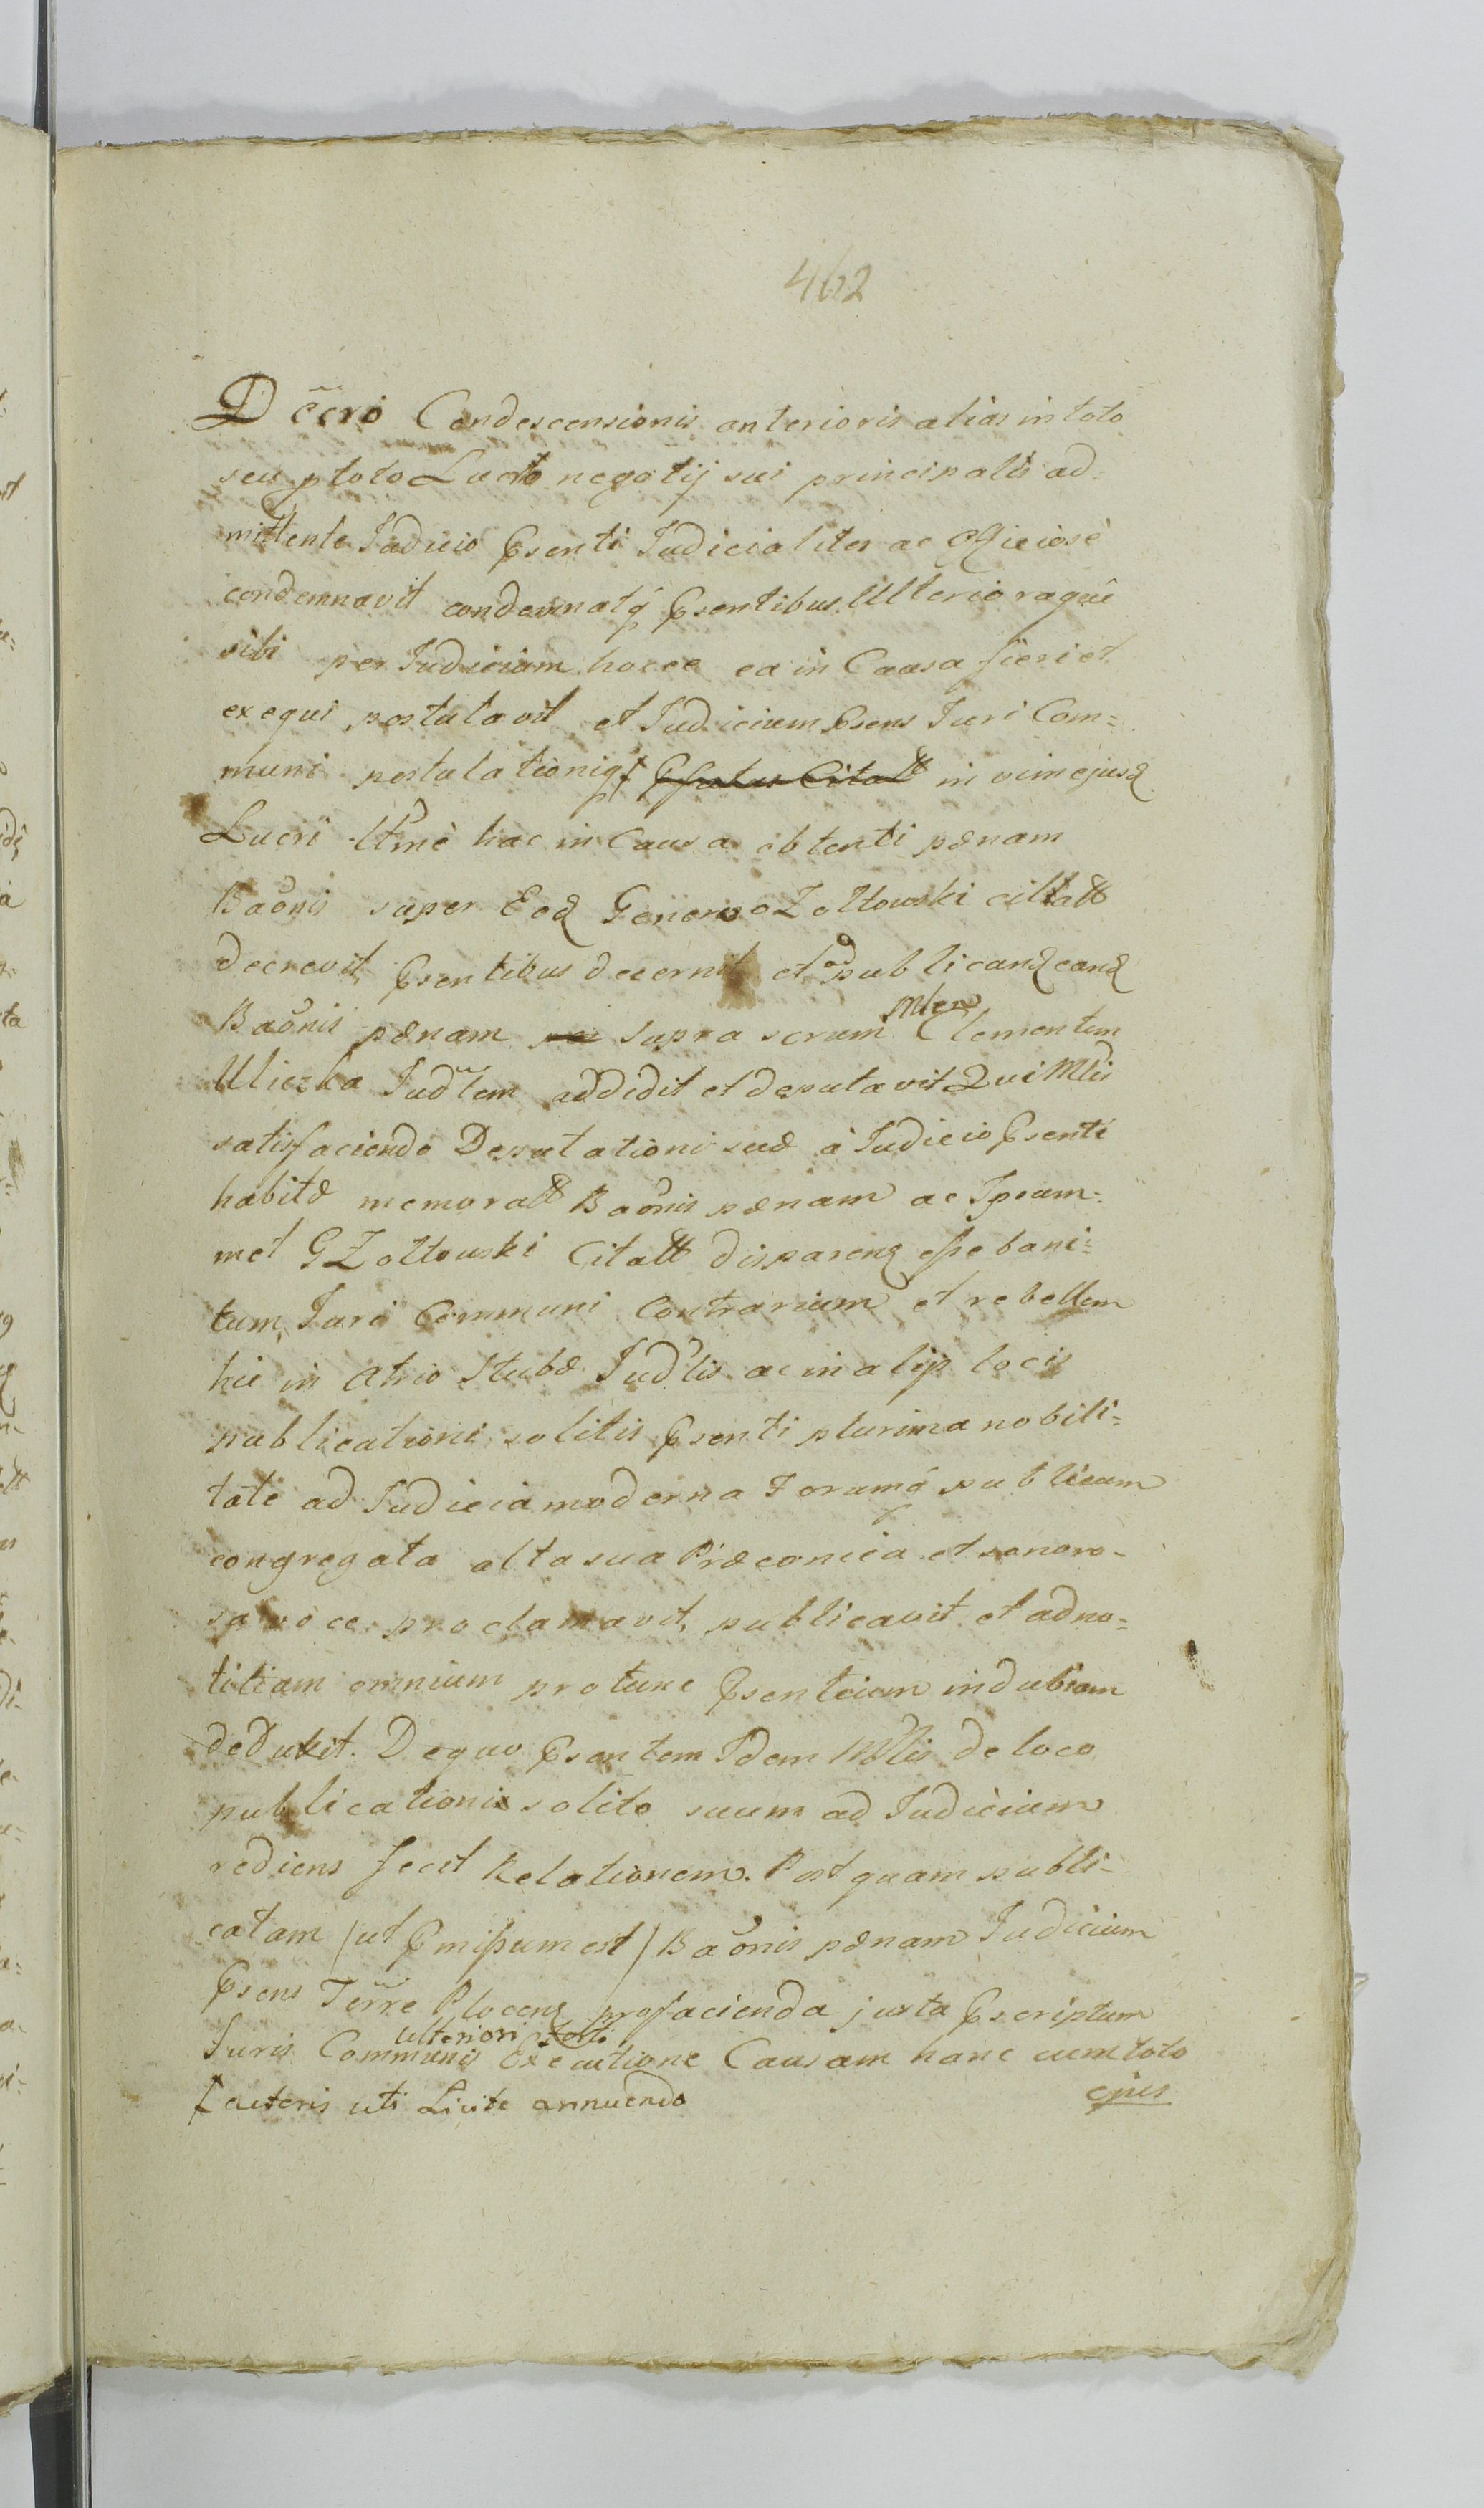 462
Dccri Condescensionis anterioris alias in toto
seu ptoto Lucro negotij sui principalis ad=
mittente Judicio Psenti Judicialiter ac Officiosè
condemnavit condemnatq́ Psentibus. Ulterioraquè
sibi per Judicium hocce ea in Causa fieri et
exequi postulavit et Judicium Psens Juri Com=
muni postulationiq́ in vim ejusd
Lucri Ultimè hac in Causa obtenti pænam
Baõnis super Eod Generoso Zołtowski citatt
decrevit, Psentibus decernit et ad publicand eand
Baõnis pænam supra scrum Mlem Clementem
Uliczka Judlem addidit et deputavit Qui Mlis
satisfaciendo Deputationi suæ à Judicio Psenti
habitæ memoratt Baõnis pænam ac Ipsum=
met G Zołtowski Citatt disparend esse bani=
tum, Juri Communi Contrarium et rebellem
hic in Atrio Stubæ Judlis ac in alijs locis
publicationi solitis Psenti plurima nobili=
tate ad Judicia moderna Forumq́ publicum
congregata alta sua Præconica et sonoro-
sa voce proclamavit, publicavit et ad no=
titiam omnium protunc Psentium indubiam
deduxit. Dequo Psentem Idem Mlis de loco
publicationis solito suum ad Judicium
rediens fecit Relationem. Post quam publi-
catam (ut Pmissum est) Baõnis pænam Judicium
Psens Terre Plocens pro facienda juxta Pscriptum
Juris Communis ulteriori Executione Causam hanc cum toto
cæteris uti Licite annuendo
ejus